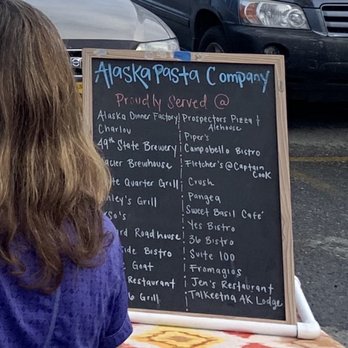 Alaska Pasta Company
Proudly Served @
Alaska Dinner Factory
Charlou
49th State Brewery
Glacier Brewhouse
Quarter Grill
Grill
Roadhouse
Bistro
Goat
Restaurant
Grill
Prospectors Pizza &
Alehouse
Piper's
Campobello Bistro
Fletcher's @ Captain
Cook
Crush
Pangea
Sweet Basil Café
Yes Bistro
36 Bistro
Suite 100
Fromagios
Jen's Restaurant
Talkeetna AK Lodge